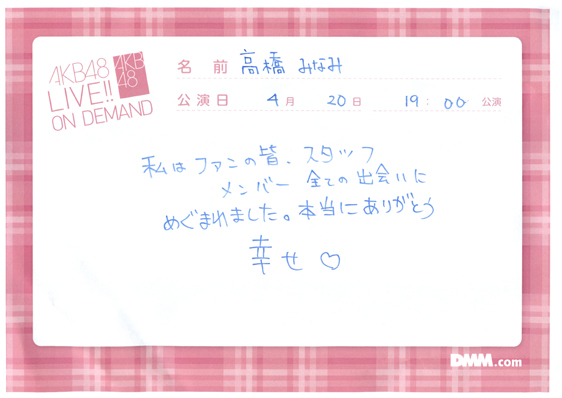 AKB48
LIVE!!
ON DEMAND
AKB
48
名 前 高橋 みなみ
公演日 4月 20日 19:00 公演
私は ファンの皆、スタッフ
メンバー 全ての出会いに
めぐまれました。本当にありがとう
幸せ♡
DMM.com